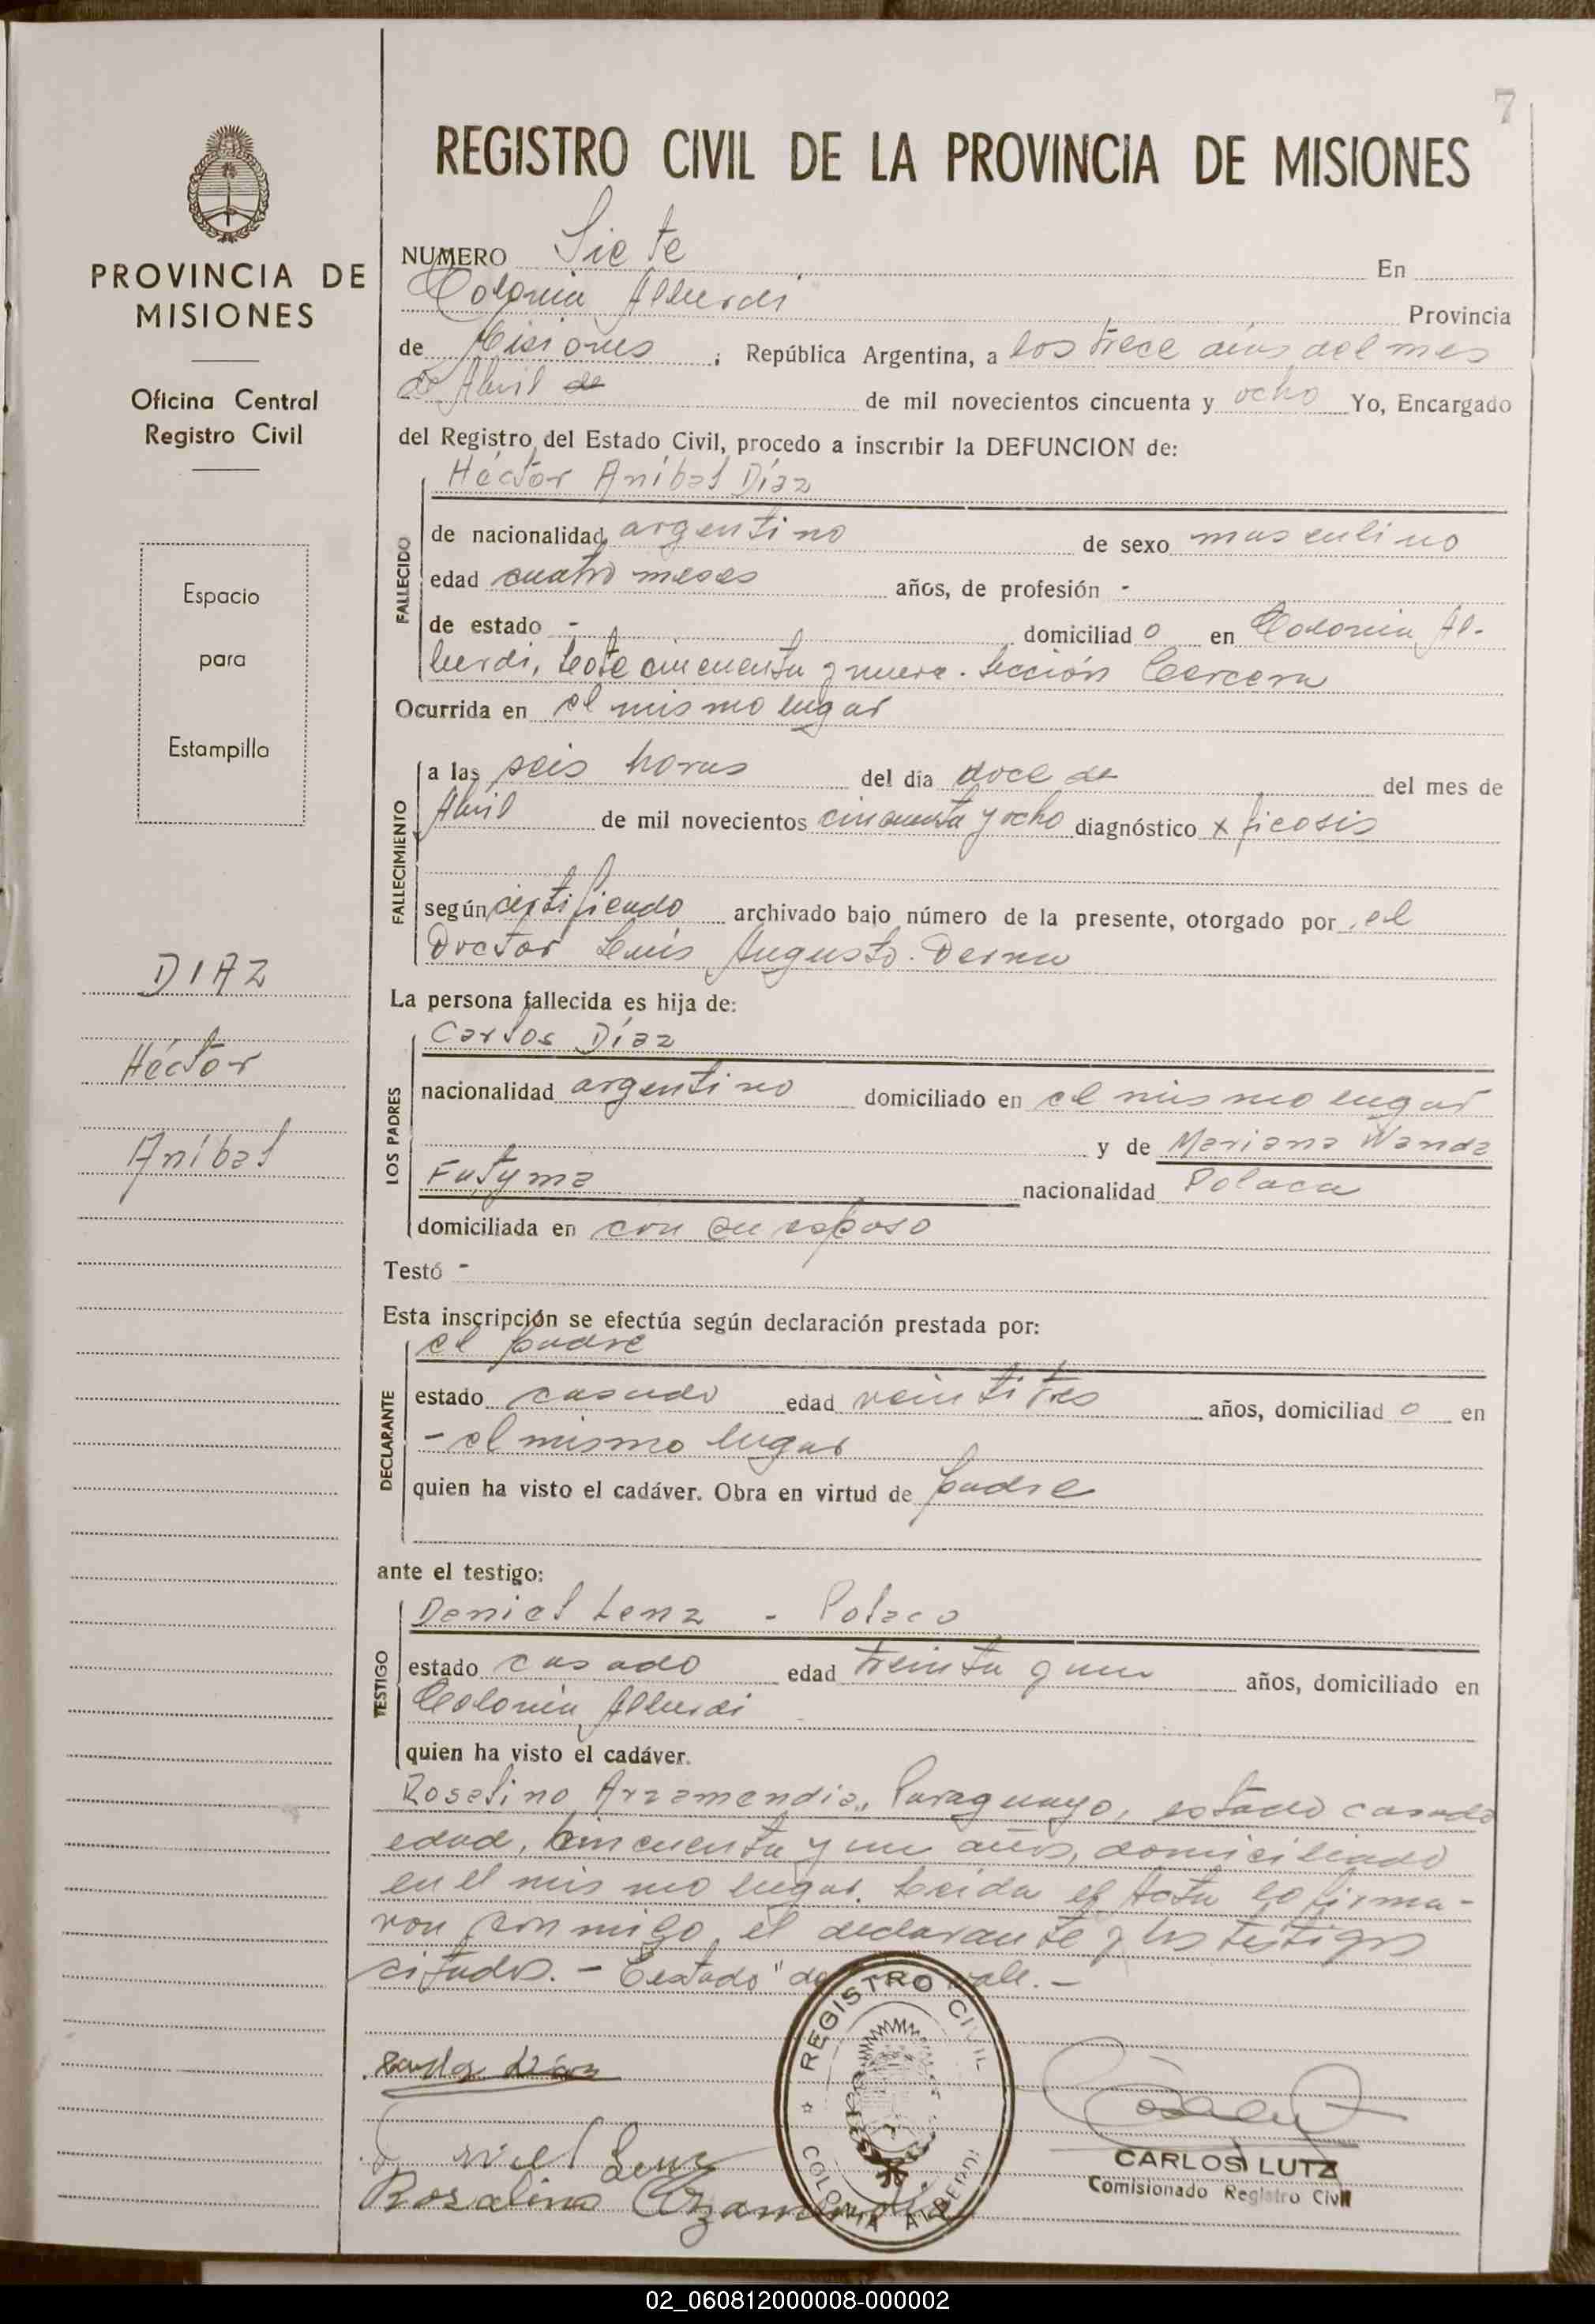 7
REGISTRO CIVIL DE LA PROVINCIA DE MISIONES
PROVINCIA DE
MISIONES
Oficina Central
Registro Civil
Espacio
para
Estampilla
DIAZ
Héctor
Aníbal
NUMERO Siete En
Colonia Alberdi Provincia
de Misiones ; República Argentina, a los trece dias del mes
de Abril de de mil novecientos cincuenta y ocho Yo, Encargado
del Registro del Estado Civil, procedo a inscribir la DEFUNCION de:
Héctor Aníbal Díaz
FALLECIDO
de nacionalidad argentino de sexo masculino
edad cuatro meses años, de profesión -
de estado - domiciliado en Colonia Al-
berdi, Lote cincuenta y nueve. Sección Tercera
Ocurrida en el mismo lugar
FALLECIMIENTO
a las seis horas del día doce de del mes de
Abril de mil novecientos cincuenta y ocho diagnóstico x ficosis
según certificado archivado bajo número de la presente, otorgado por el
Doctor Luis Augusto
La persona fallecida es hija de:
LOS PADRES
Carlos Díaz
nacionalidad argentino domiciliado en el mismo lugar
y de Mariana Wanda
Futyma nacionalidad Polaca
domiciliada en con su esposo
Testó -
Esta inscripción se efectúa según declaración prestada por:
DECLARANTE
el padre
estado casado edad veintitres años, domiciliado en
- el mismo lugar
quien ha visto el cadáver. Obra en virtud de padre
ante el testigo:
TESTIGO
Daniel Lenz - Polaco
estado casado edad treinta y un años, domiciliado en
Colonia Alberdi
quien ha visto el cadáver.
Rosalino Arzamendia, Paraguayo, estado casado
edad, cincuenta y un años, domiciliado
en el mismo lugar. Leida el Acta la firma-
ron conmigo el declarante y los testigos
citados. - Testado "de vale. -
Carlos Díaz
Daniel Lenz
Rosalino Arzamendia
REGISTRO CIVIL
COLONIA ALBERDI
CARLOS LUTZ
Comisionado Registro Civil
02_060812000008-000002